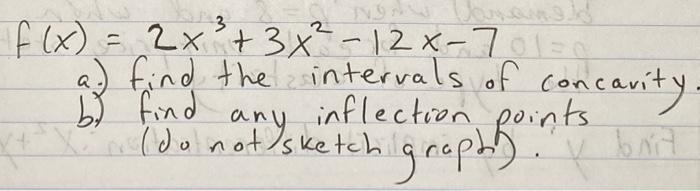 f(x) = 2x³ + 3x² - 12x - 7
a.) find the intervals of concavity.
b.) find any inflection points
(do not sketch graph).